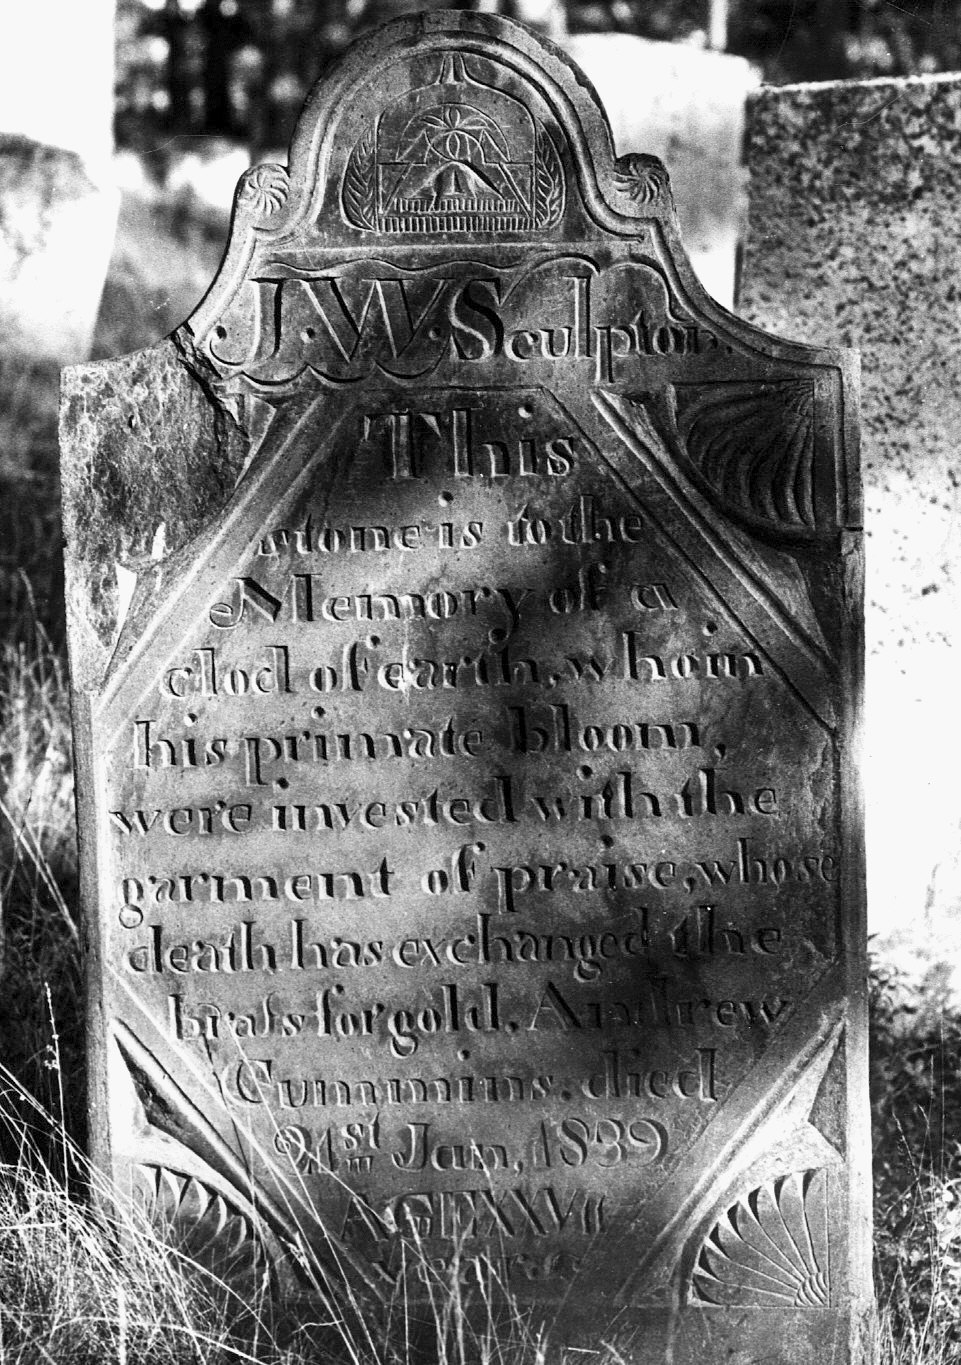 J. W. Sculptor.
This
stone is to the
Memory of a
clod of earth, whom
his primate bloom,
were invested with the
garment of praise, whose
death has exchanged the
brass for gold. Andrew
Cummins. died
21st Jan, 1839
AGE
years